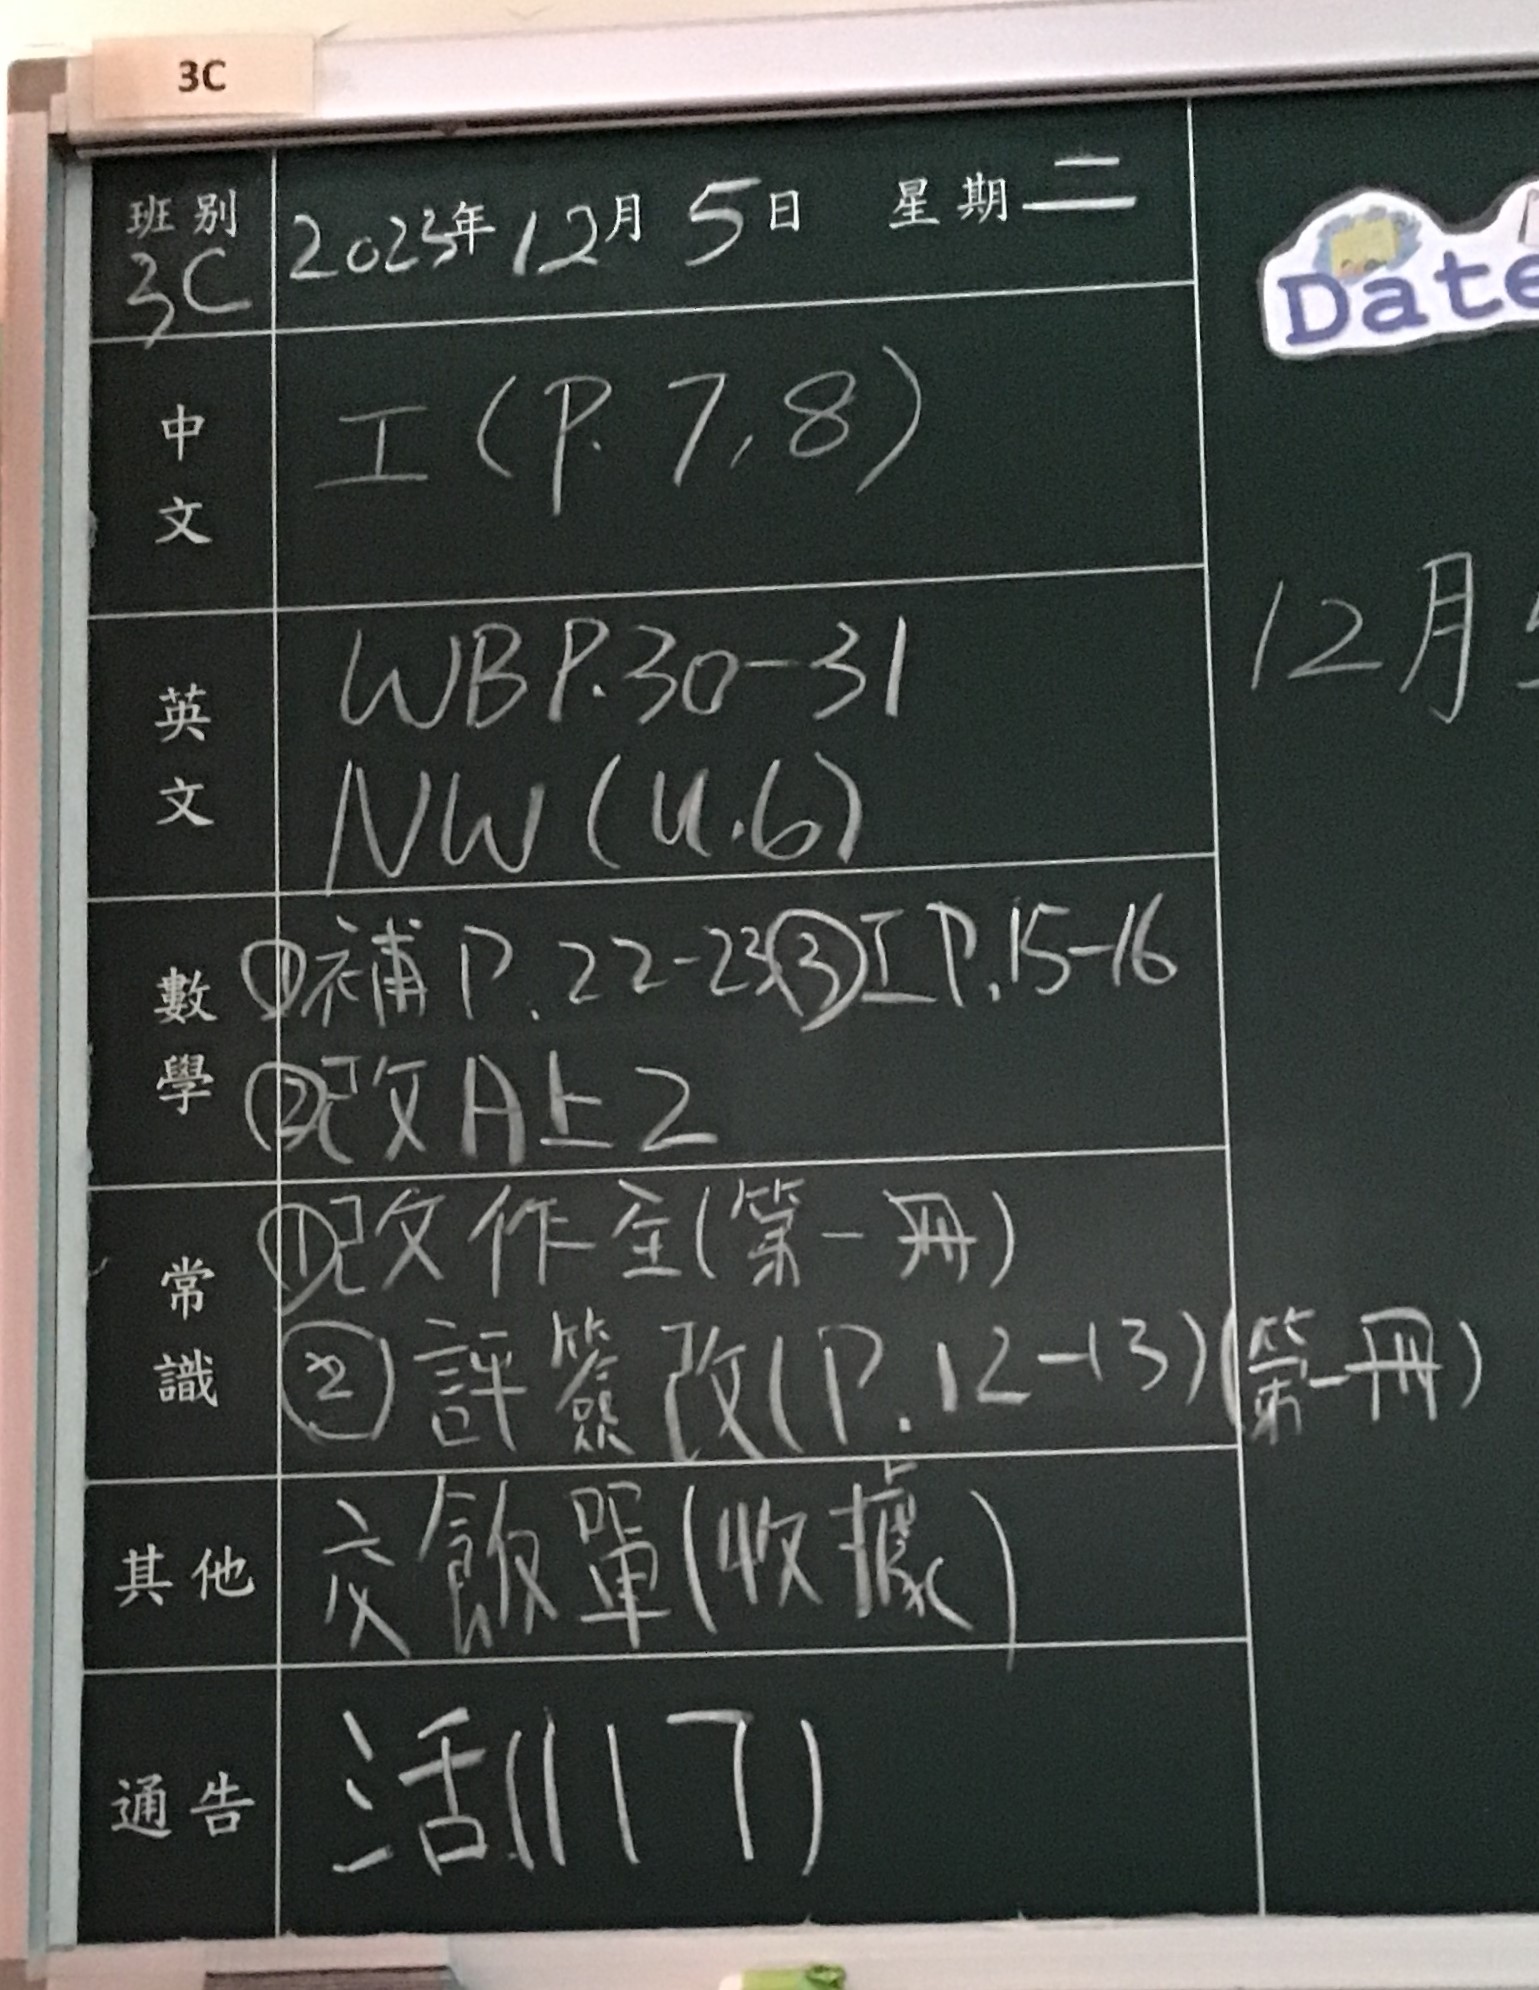 3C
班別 3C
2023年12月5日 星期二
中文
工(P.7,8)
英文
WB P.30-31
NW(U.6)
數學
①補P.22-23③工P.15-16
②改A上2
常識
①改作全(第一冊)
②評簽改(P.12-13)(第一冊)
其他
交飯單(收據)
通告
活(117)
Date
12月